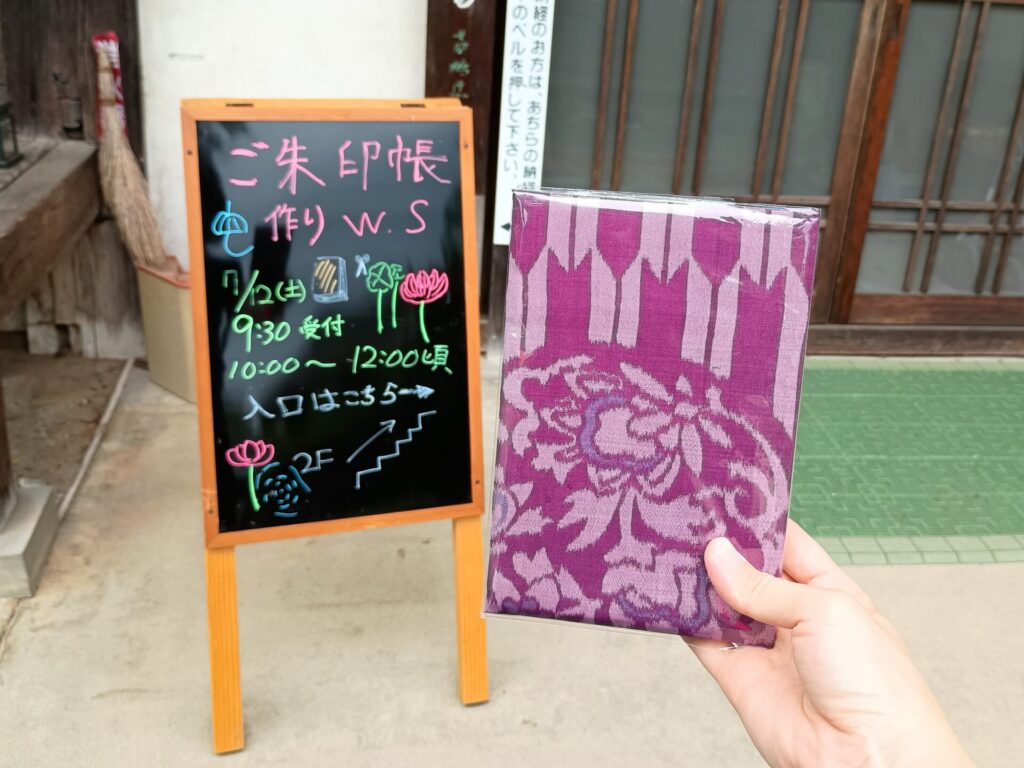 ご朱印帳
作り W.S
7/12(土)
9:30 受付
10:00〜12:00頃
入口はこちら→
2F
経のお方は、あちらの納
のベルを押して下さい。